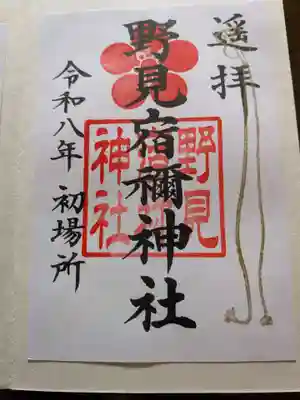 遥拝
野見宿禰神社
令和八年 初場所
野見
宿禰
神社